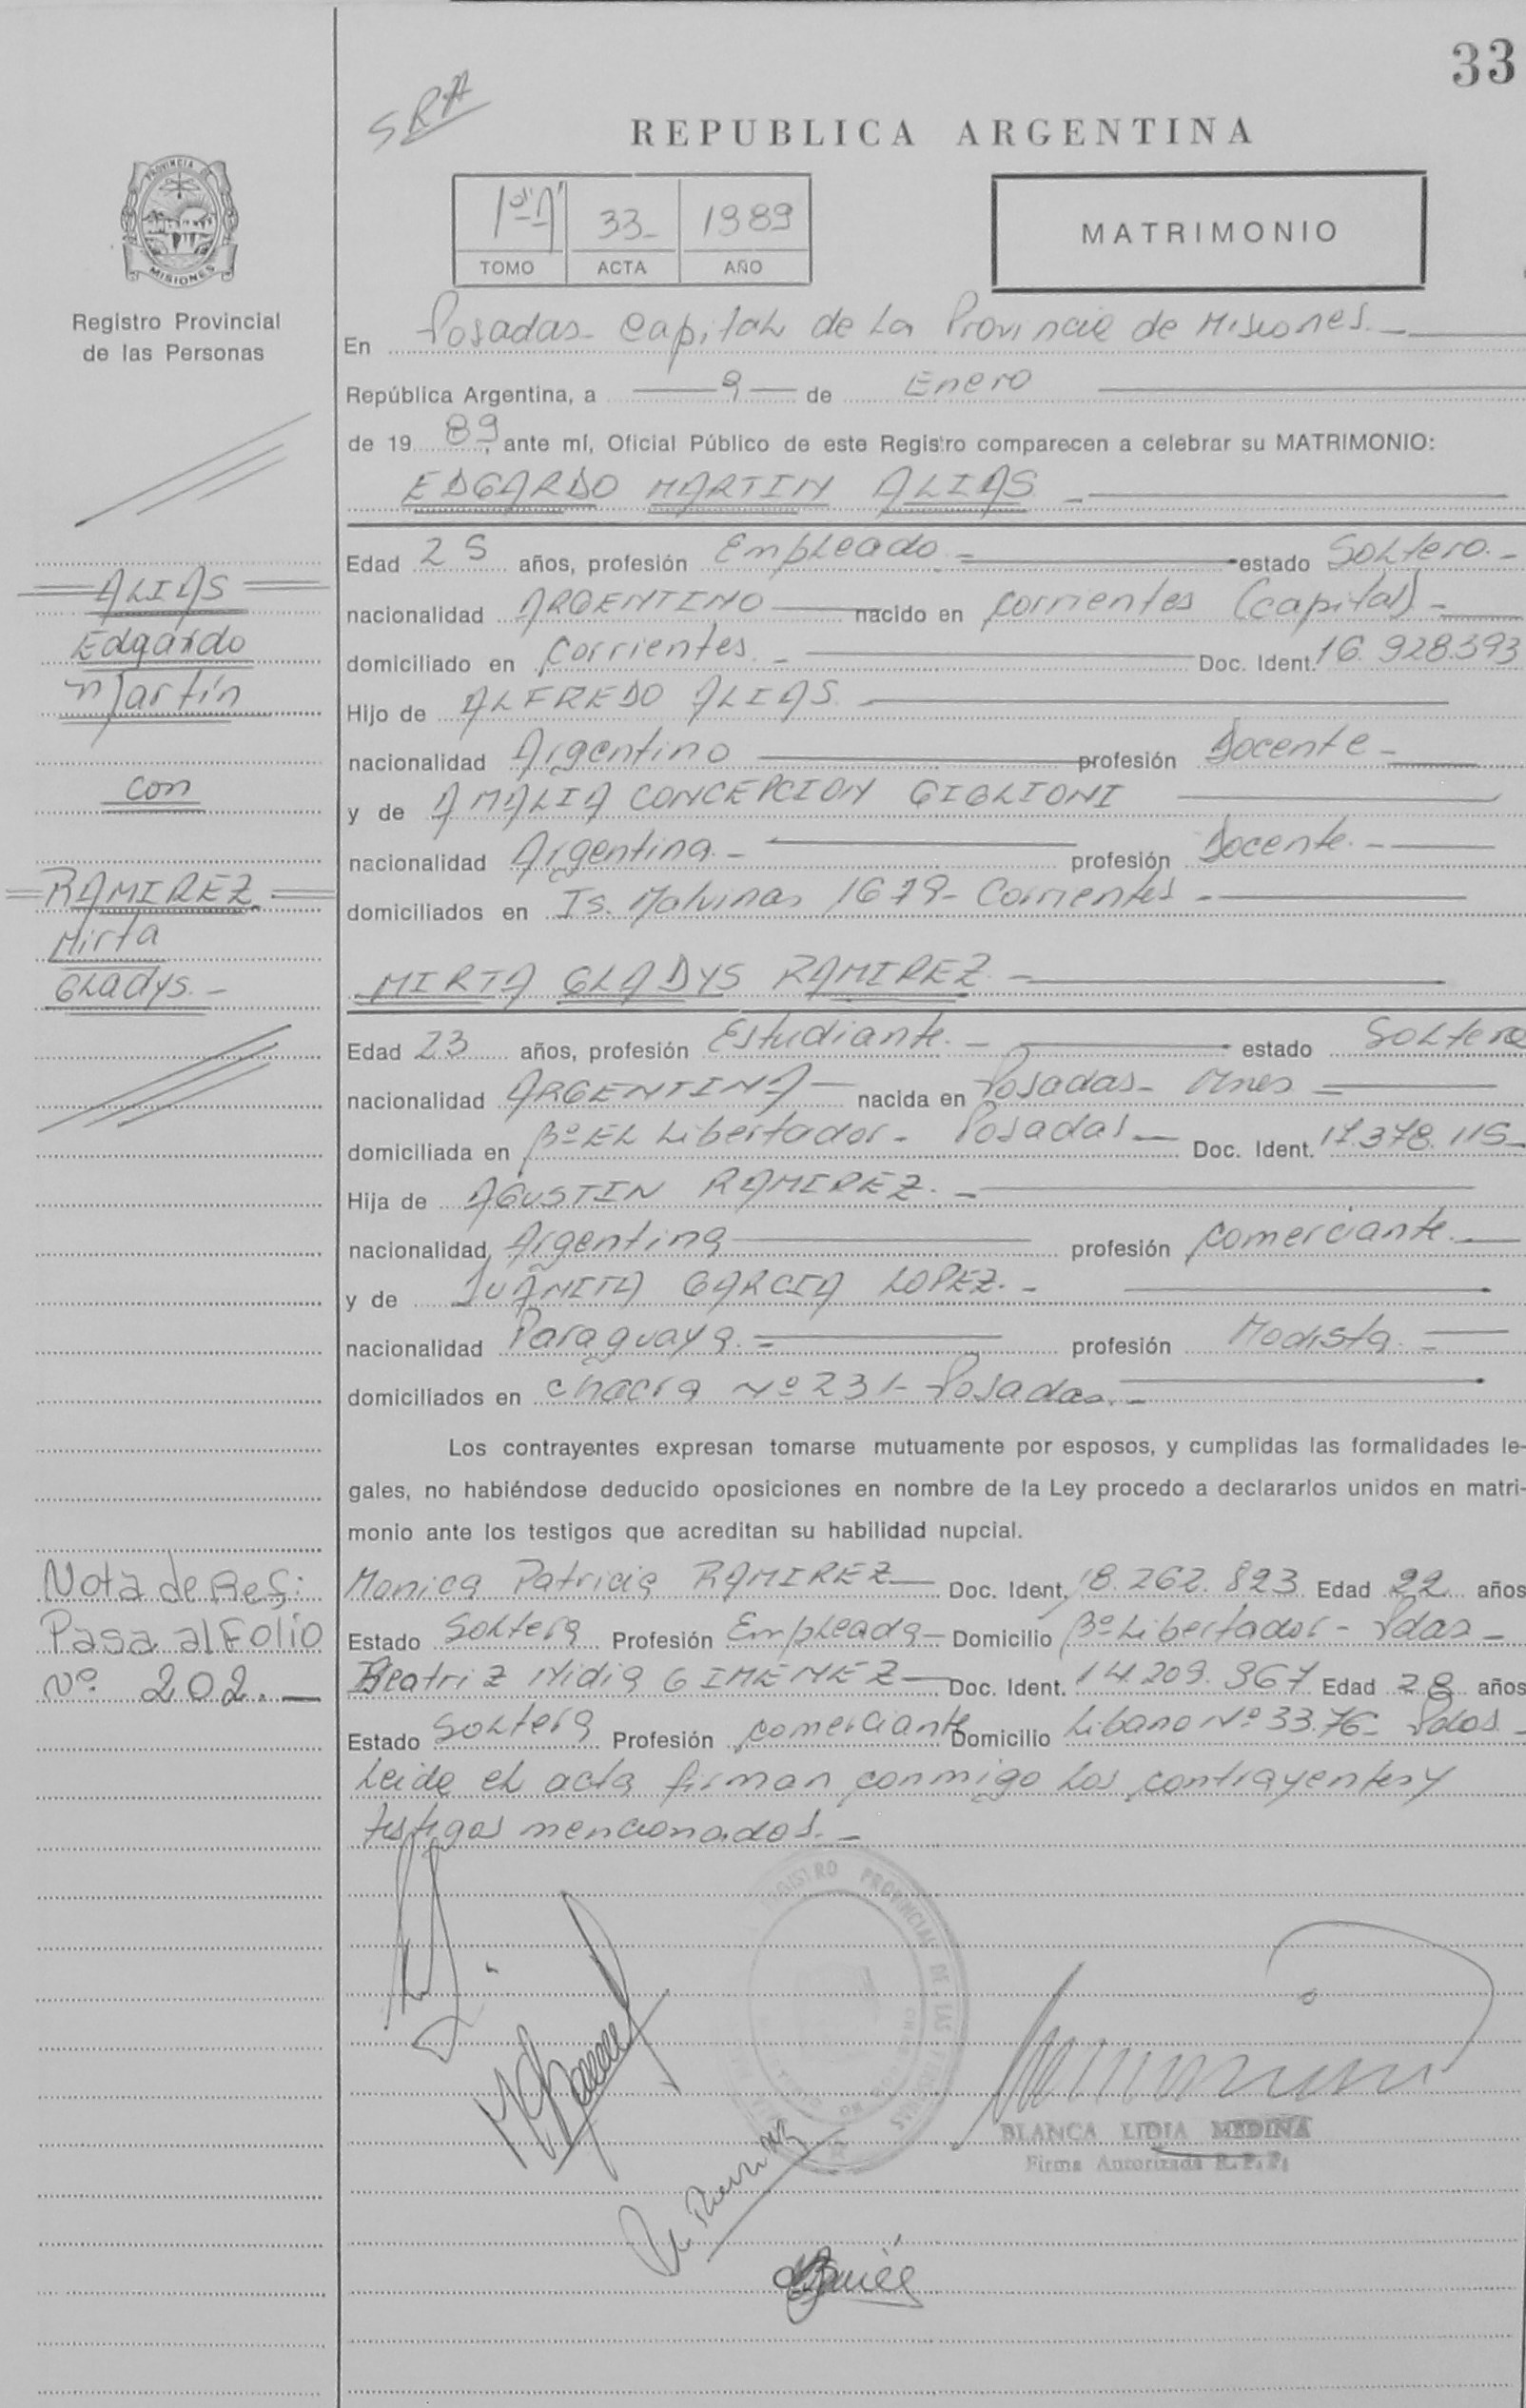 33
SRA
REPUBLICA ARGENTINA
PROVINCIA DE
MISIONES
Registro Provincial
de las Personas
1º "A" 33- 1989
TOMO ACTA AÑO
MATRIMONIO
En Posadas- Capital de La Provincia de Misiones.-
República Argentina, a 9 de Enero
de 19 89, ante mí, Oficial Público de este Registro comparecen a celebrar su MATRIMONIO:
EDGARDO MARTIN ALIAS -
Edad 25 años, profesión Empleado.- estado Soltero.-
nacionalidad ARGENTINO nacido en Corrientes (Capital)-
domiciliado en Corrientes.- Doc. Ident. 16.928.393
Hijo de ALFREDO ALIAS.
nacionalidad Argentino profesión Docente-
y de AMALIA CONCEPCION GIGLIONI
nacionalidad Argentina.- profesión Docente.-
domiciliados en Is. Malvinas 1679- Corrientes-
MIRTA GLADYS RAMIREZ.-
Edad 23 años, profesión Estudiante.- estado Soltera
nacionalidad ARGENTINA- nacida en Posadas- Mnes
domiciliada en Bº EL Libertador- Posadas- Doc. Ident. 17.378.115-
Hija de AGUSTIN RAMIREZ.-
nacionalidad, Argentina profesión Comerciante.
y de JUANITA GARCIA LOPEZ.-
nacionalidad Paraguaya.- profesión Modista.-
domiciliados en Chacra Nº 231- Posadas.-
Los contrayentes expresan tomarse mutuamente por esposos, y cumplidas las formalidades le-
gales, no habiéndose deducido oposiciones en nombre de la Ley procedo a declararlos unidos en matri-
monio ante los testigos que acreditan su habilidad nupcial.
Monica Patricia RAMIREZ- Doc. Ident. 18.262.823 Edad 22 años
Estado Soltera Profesión Empleada- Domicilio Bº Libertador- Pdas-
Beatriz Nidia GIMENEZ- Doc. Ident. 14.209.967 Edad 28 años
Estado Soltera Profesión Comerciante Domicilio Libano Nº 3376- Pdas-
Leida el acta firman conmigo los contrayentes y
testigos mencionados.-
ALIAS
Edgardo
Martín
con
RAMIREZ
Mirta
Gladys.-
Nota de Ref:
Pasa al Folio
Nº 202.-
REGISTRO PROVINCIAL DE LAS PERSONAS
BLANCA LIDIA MEDINA
Firma Autorizada R. P. P.